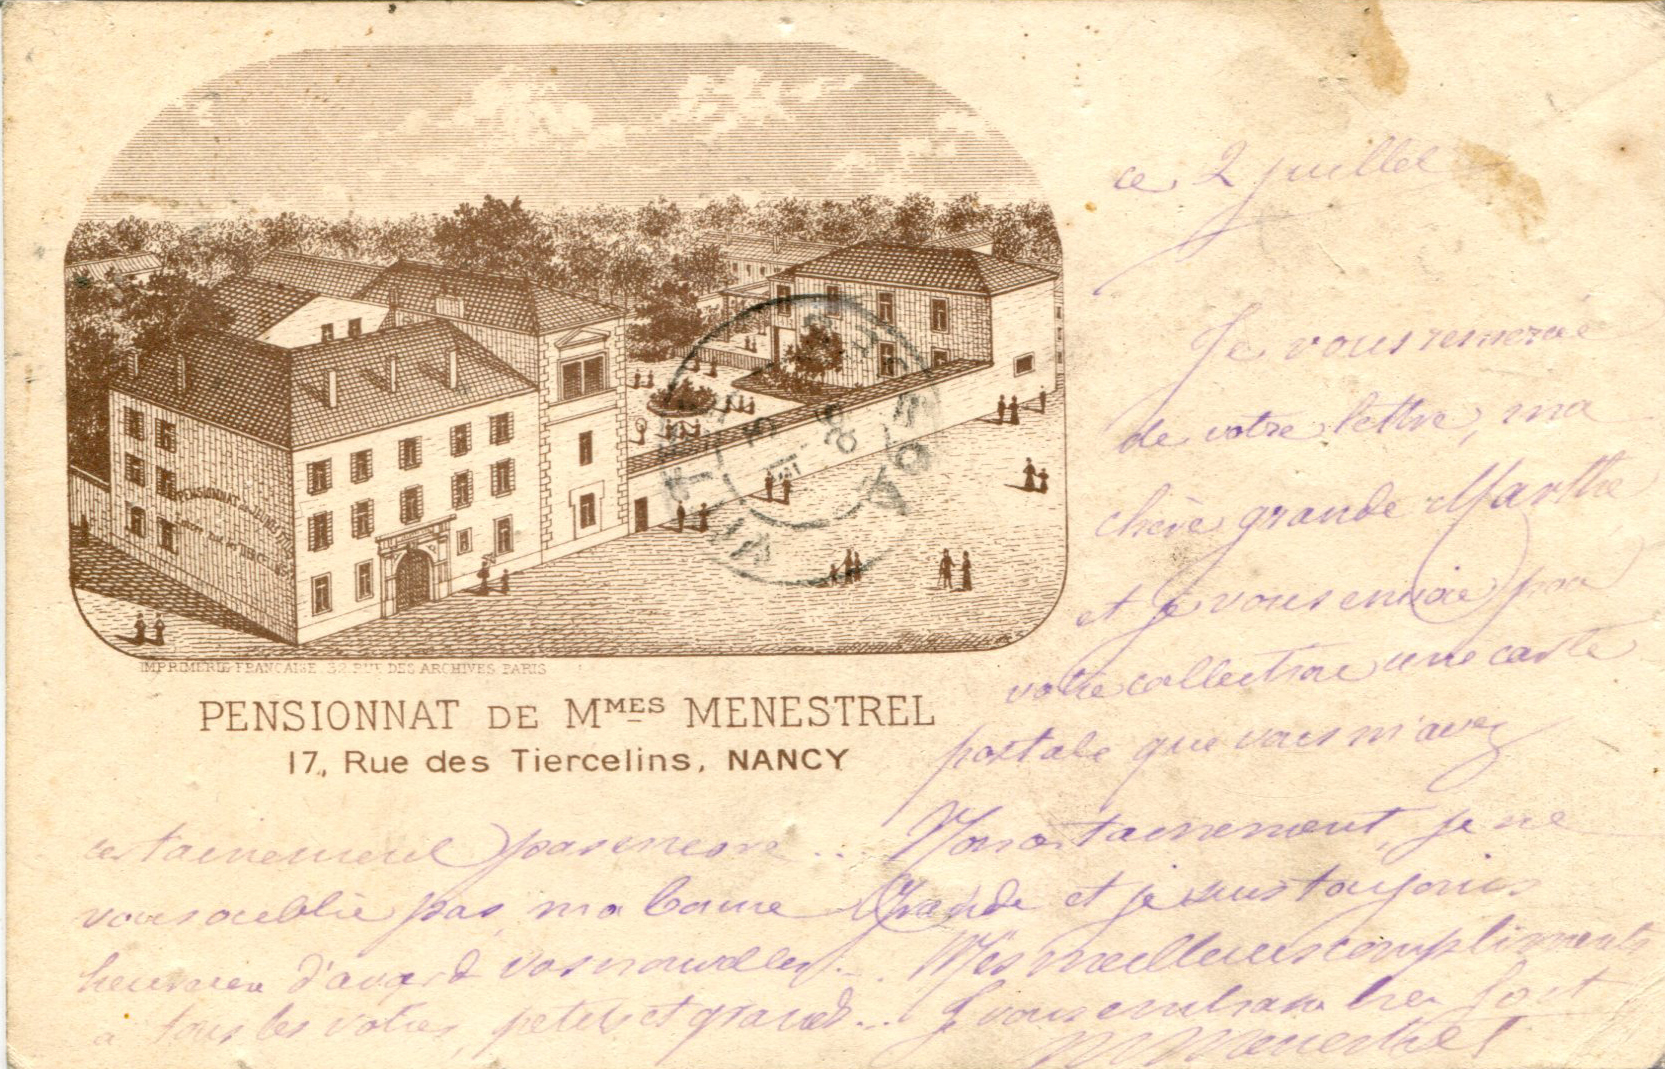 ce 2 juillet
Je vous remercie
de votre lettre, ma
chère grande Marthe
et je vous envoie pour
votre collection une carte
postale que vous m'avez
certainement pas encore .. Non certainement, je ne
vous oublie pas, ma bonne Grande et je suis toujours
heureuse d'avoir vos nouvelles... Mes meilleurs compliments
à tous les votres, petits et grands... Je vous embrasse bien fort
M Menestrel
PENSIONNAT DE
IMPRIMERIE FRANÇAISE 32 RUE DES ARCHIVES PARIS
PENSIONNAT DE MMES MENESTREL
17, Rue des Tiercelins, NANCY